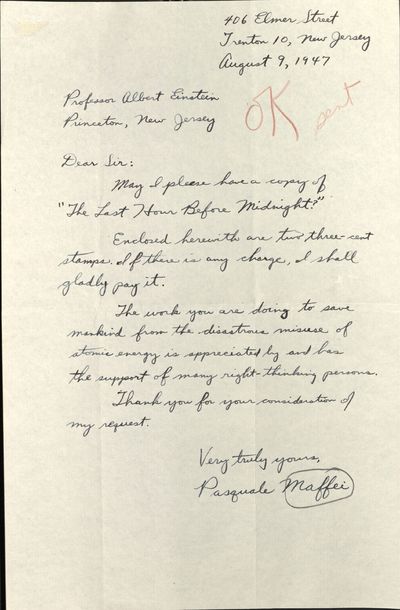 406 Elmer Street
Trenton 10, New Jersey
August 9, 1947
Professor Albert Einstein
Princeton, New Jersey
OK sent
Dear Sir:
May I please have a copy of
"The Last Hour Before Midnight?"
Enclosed herewith are two three-cent
stamps. If there is any charge, I shall
gladly pay it.
The work you are doing to save
mankind from the disastrous misuse of
atomic energy is appreciated by and has
the support of many right-thinking persons.
Thank you for your consideration of
my request.
Very truly yours,
Pasquale Maffei